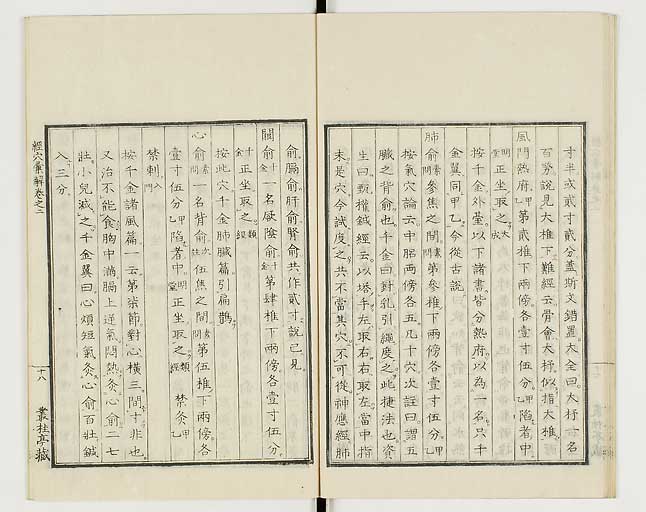 才半或貳寸貳分蓋斯文錯置大全曰大杼一名
百勞說見大椎下難經云骨會大杼似指大椎
風門熱府甲乙第貳椎下兩傍各壹寸伍分甲乙陷者中
明堂正坐取之大成
按千金外臺以下諸書皆分熱府以為一名只千
金翼同甲乙今從古說
肺俞素問參焦之間素問第參椎下兩傍各壹寸伍分甲乙
按氣穴論云中䏚兩傍各五凡十穴次註曰謂五
臟之背俞也千金曰對乳引繩度之此捷法也資
生曰甄權鍼經云以搭手左取右右取左當中指
末是穴今試度之共不當其穴不可從神應經肺
俞膈俞肝俞腎俞共作貳寸說已見
闕俞千金一名厥陰俞千金第肆椎下兩傍各壹寸伍分
千金正坐取之類經
按此穴千金肺臟篇引扁鵲
心俞素問一名背俞伍焦之間素問第伍椎下兩傍各
壹寸伍分甲乙陷者中明堂正坐取之類經禁灸甲乙
禁刺刺入
按千金諸風篇一云第柒節對心橫三間寸非也
又治不能食胸中滿膈上逆氣悶熱灸心俞二七
壯小兒減之千金翼曰心煩短氣灸心俞百壯鍼
入三分
經穴彙解卷之二
十八
叢桂亭藏